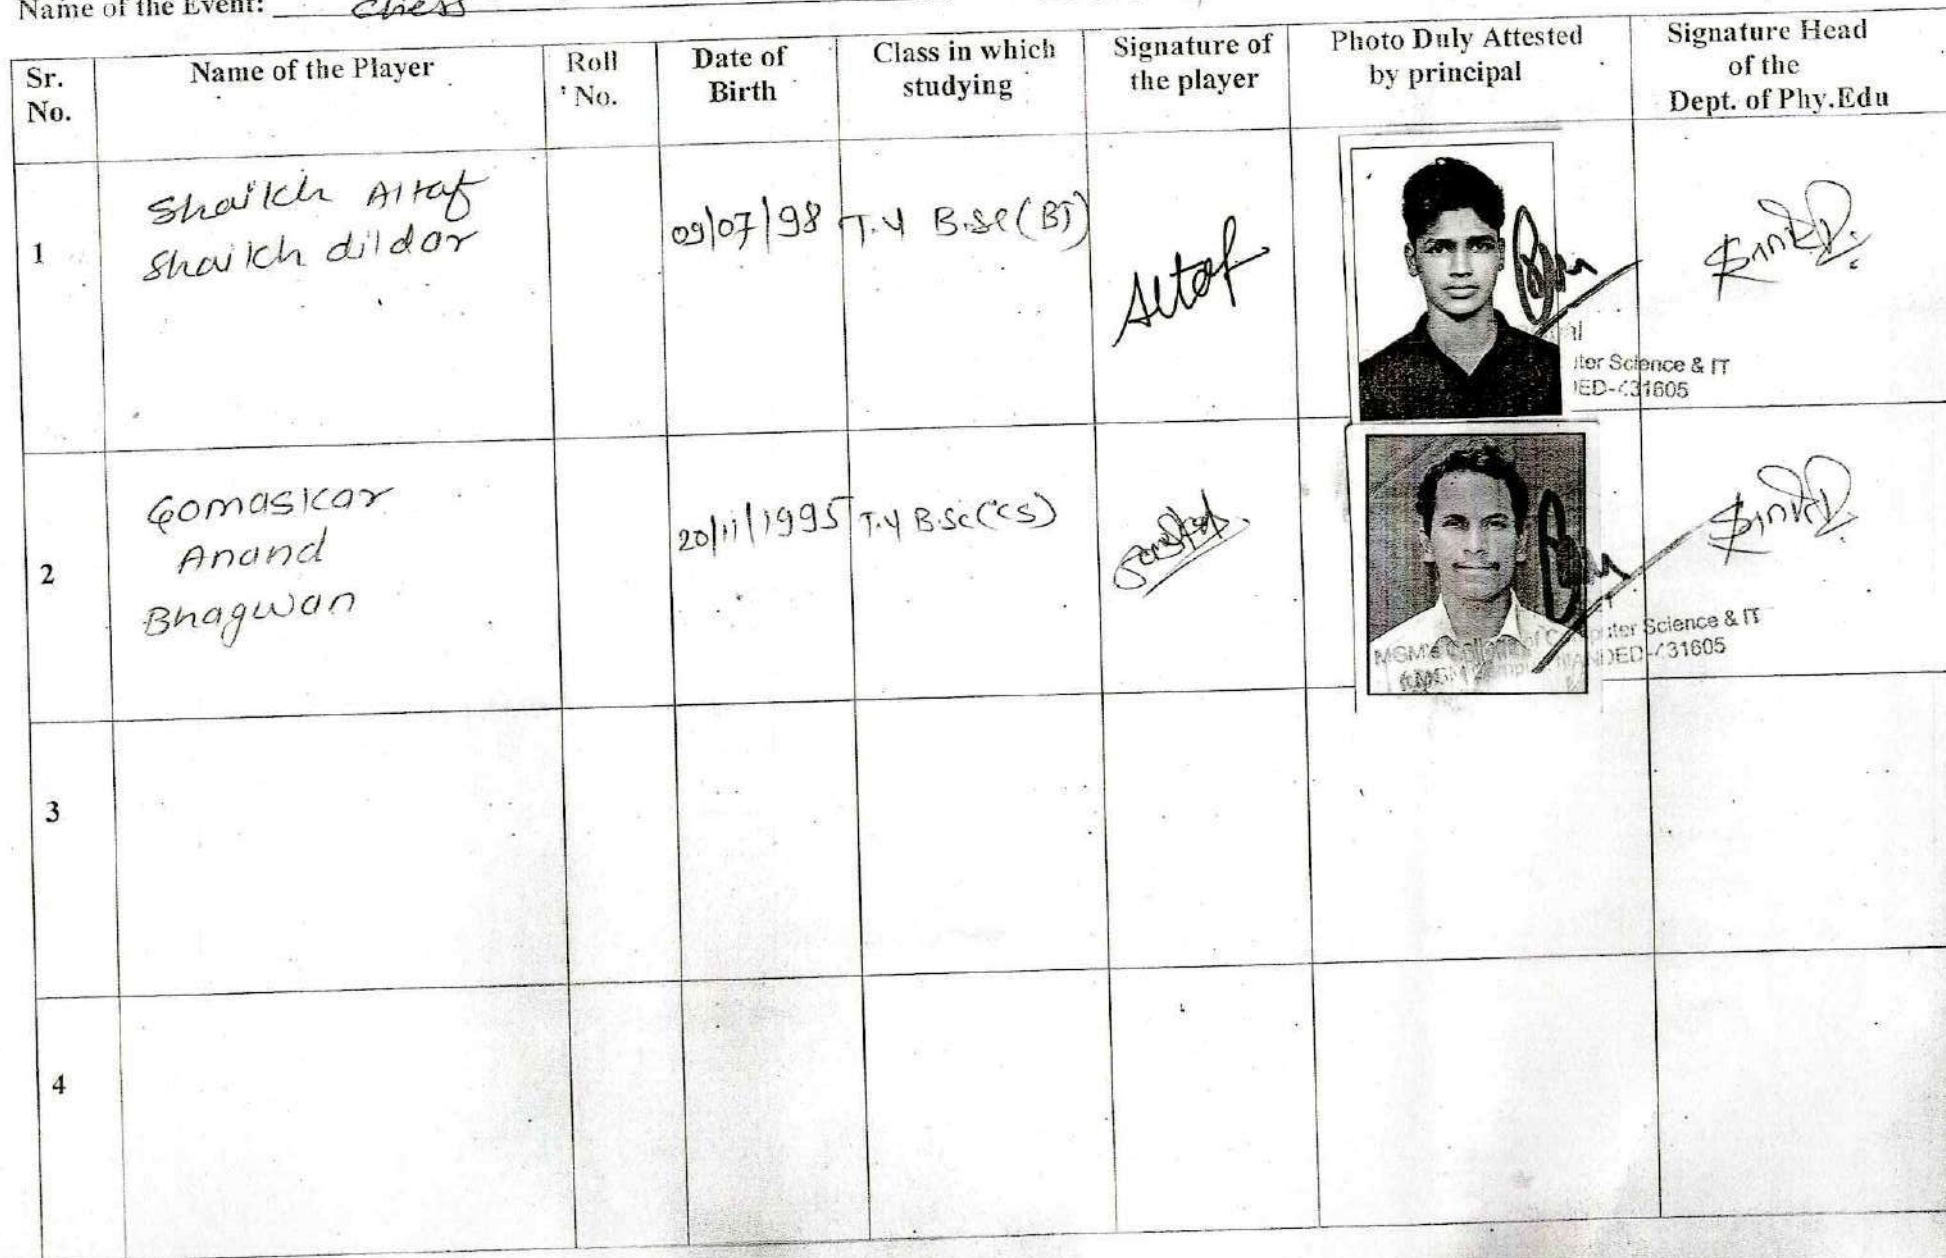 Name of the Event: Chess
Sr. No.
Name of the Player
Roll No.
Date of Birth
Class in which studying
Signature of the player
Photo Duly Attested by principal
Signature Head of the Dept. of Phy.Edu
1
Shaikh Altaf
Shaikh dildar
09/07/98
T.Y B.Sc(BT)
Altaf
ter Science & IT
DED-431605
2
Gomaskar
Anand
Bhagwan
20/11/1995
T.Y B.Sc(CS)
MGM's College of Computer Science & IT
NANDED-431605
3
4